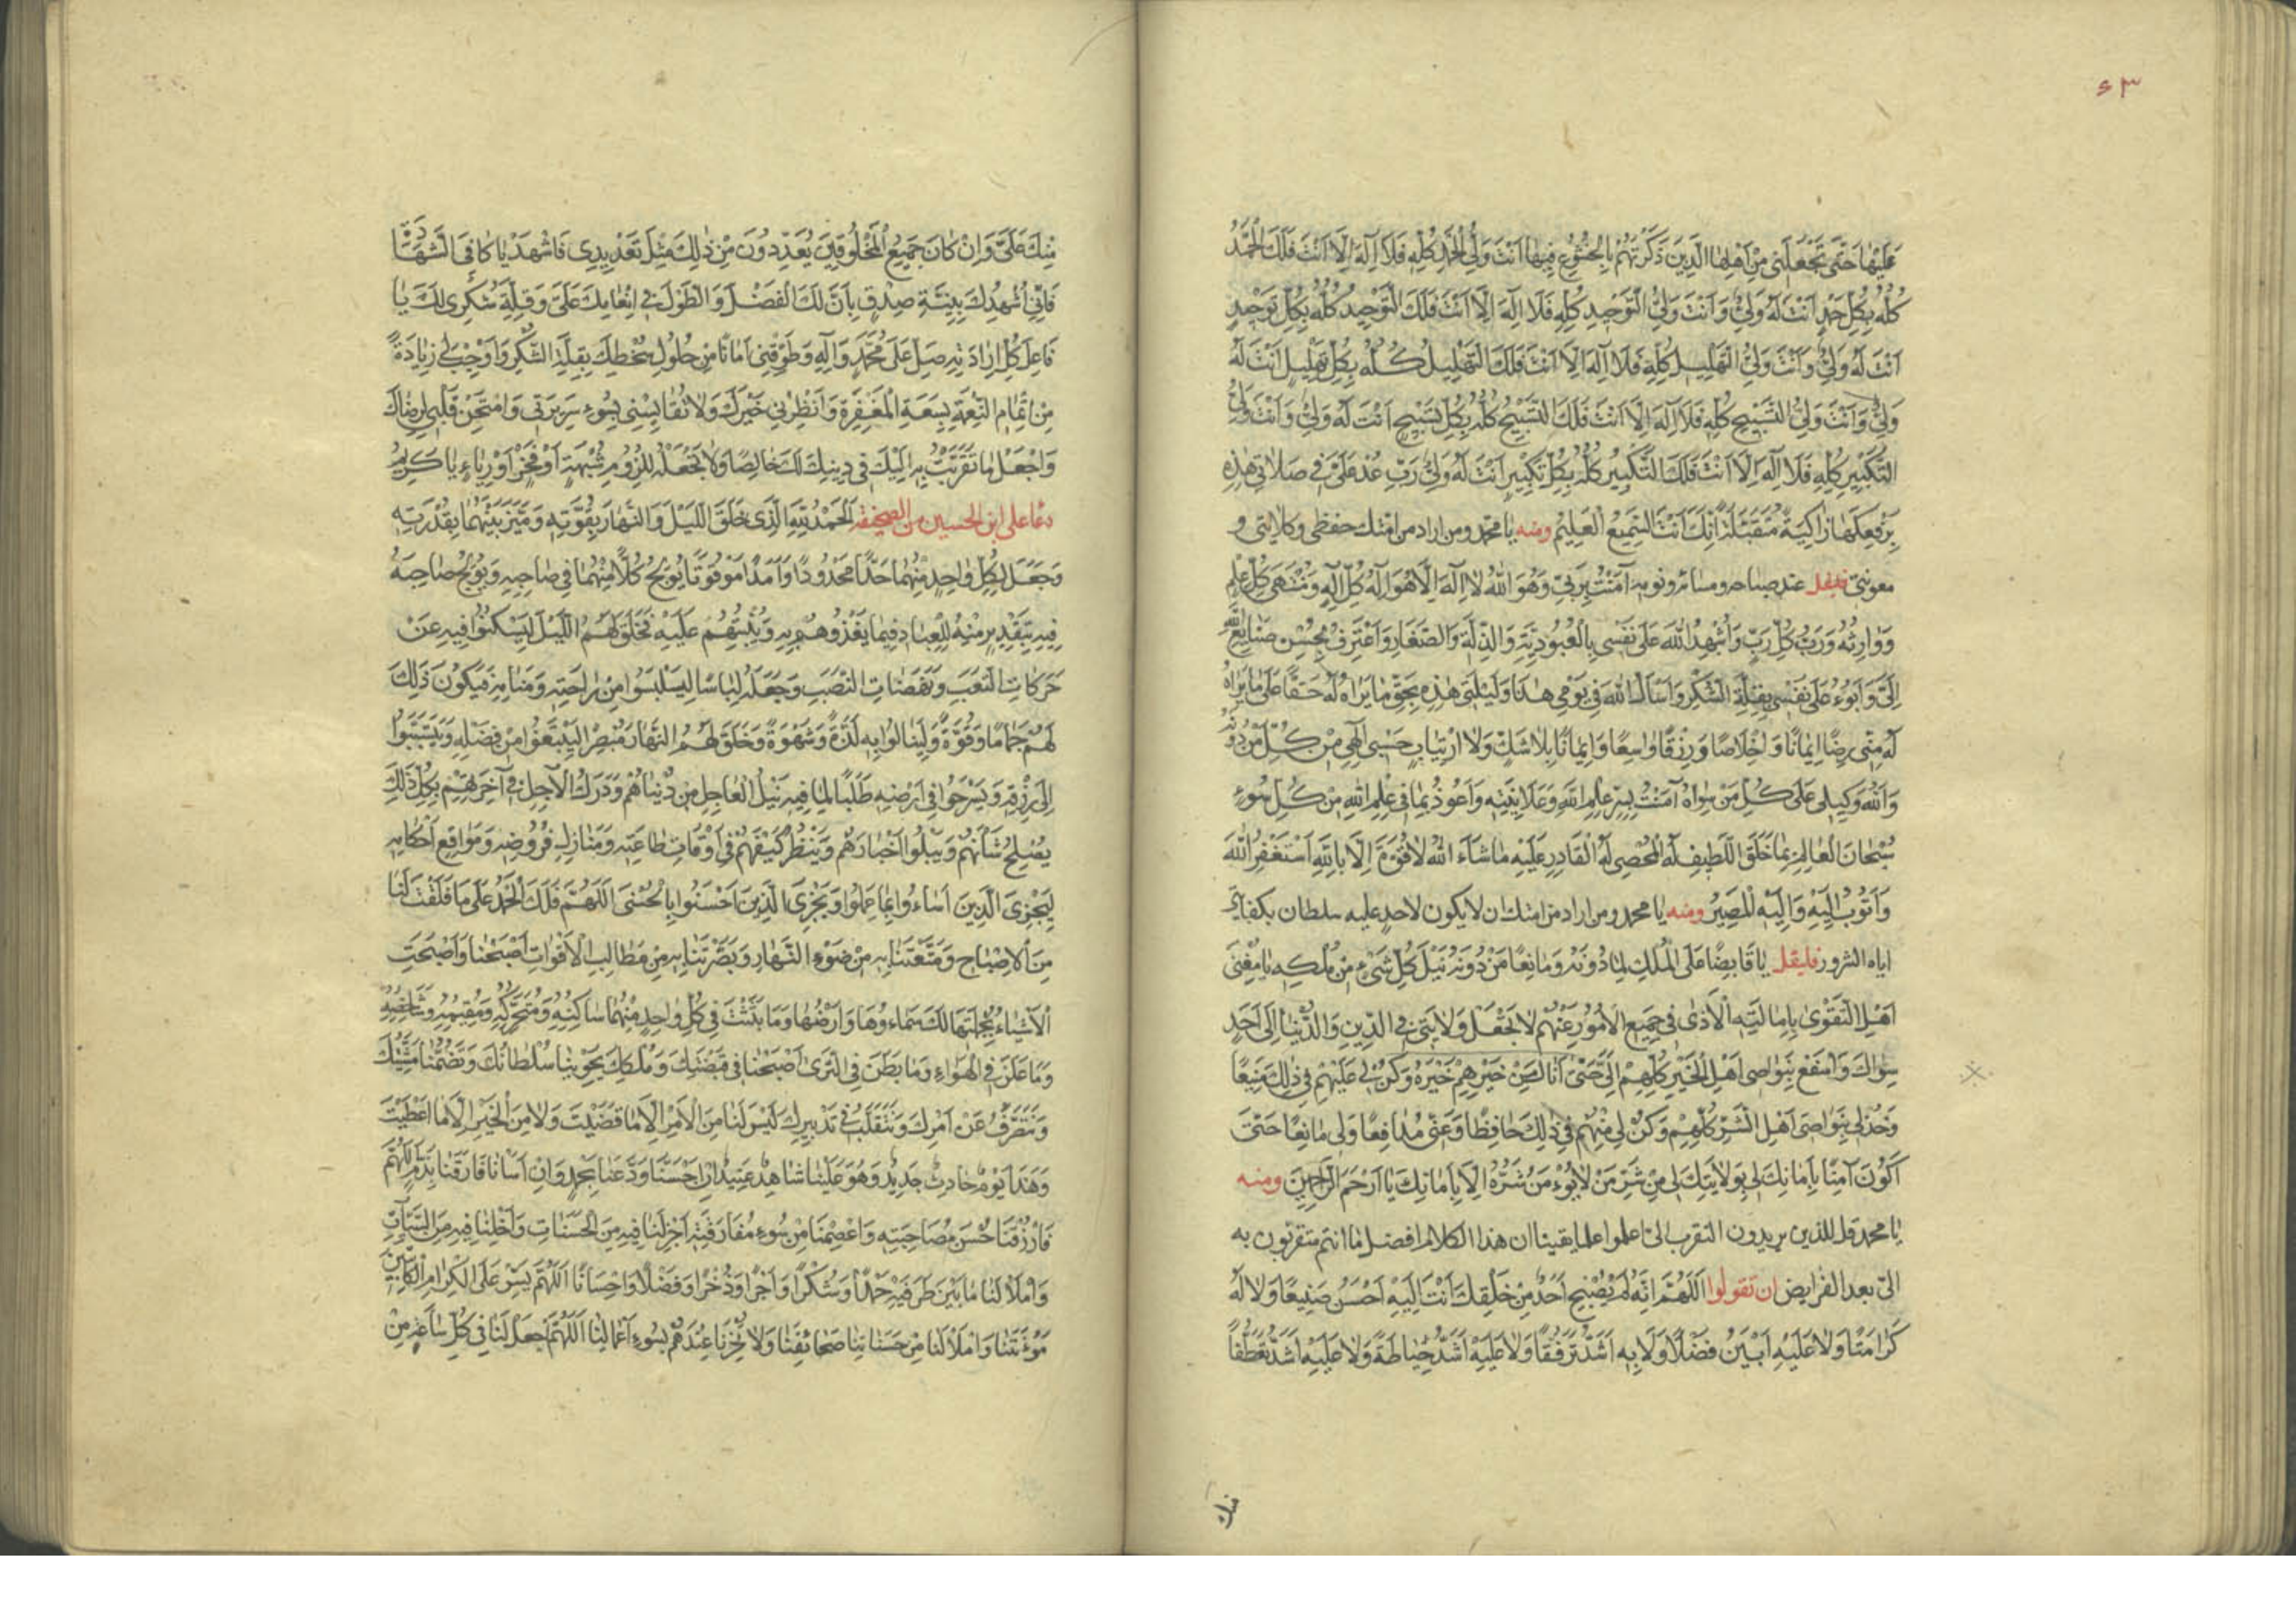 ٤٣
عَلَيْهَا حَتّى تَجْعَلَنى مِنْ اَهْلِهَا الَّذينَ ذَكَرْتَهُمْ بِالْخُشُوعِ فيهَا اَنْتَ وَلِىُّ الْحَمْدِ كُلِّهِ فَلا اِلهَ اِلّا اَنْتَ فَلَكَ الْحَمْدُ
كُلُّهُ بِكُلِّ حَمْدٍ اَنْتَ لَهُ وَلِىٌّ وَاَنْتَ وَلِىُّ التَّوْحيدِ كُلِّهِ فَلا اِلهَ اِلّا اَنْتَ فَلَكَ التَّوْحيدُ كُلُّهُ بِكُلِّ تَوْحيدٍ
اَنْتَ لَهُ وَلِىٌّ وَاَنْتَ وَلِىُّ التَّهْليلِ كُلِّهِ فَلا اِلهَ اِلّا اَنْتَ فَلَكَ التَّهْليلُ كُلُّهُ بِكُلِّ تَهْليلٍ اَنْتَ لَهُ
وَلِىٌّ وَاَنْتَ وَلِىُّ التَّسْبيحِ كُلِّهِ فَلا اِلهَ اِلّا اَنْتَ فَلَكَ التَّسْبيحُ كُلُّهُ بِكُلِّ تَسْبيحٍ اَنْتَ لَهُ وَلِىٌّ وَاَنْتَ وَلِىُّ
التَّكْبيرِ كُلِّهِ فَلا اِلهَ اِلّا اَنْتَ فَلَكَ التَّكْبيرُ كُلُّهُ بِكُلِّ تَكْبيرٍ اَنْتَ لَهُ وَلِىٌّ رَبِّ عُدْ عَلَىَّ فى صَلاتى هذِهِ
بِرَفْعِكَهَا زاكِيَةً مُتَقَبَّلَةً اِنَّكَ اَنْتَ السَّميعُ الْعَليمُ ومنه يا محمّد ومن اراد من امّتك حفظى وكلائتى و
معونتى فليقل عند صباحه ومسائه ونومه آمَنْتُ بِرَبّى وَهُوَ اللهُ لا اِلهَ اِلّا هُوَ اِلهُ كُلِّ اِلهٍ وَمُنْتَهى كُلِّ عِلْمٍ
وَوارِثُهُ وَرَبُّ كُلِّ رَبٍّ وَاُشْهِدُ اللهَ عَلى نَفْسى بِالْعُبُودِيَّةِ وَالذِّلَّةِ وَالصَّغارِ وَاَعْتَرِفُ بِحُسْنِ صَنايِعِ اللهِ
اِلَىَّ وَاَبُوءُ عَلى نَفْسى بِقِلَّةِ الشُّكْرِ وَاَسْاَلُ اللهَ فى يَوْمى هذا وَلَيْلَتى هذِهِ بِحَقِّ ما يَراهُ لَهُ حَقًّا عَلى ما يَراهُ
لَهُ مِنّى رِضًا ايمانًا وَاِخْلاصًا وَرِزْقًا واسِعًا وَايمانًا بِلا شَكٍّ وَلا ارْتِيابٍ حَسْبى اِلهى مِنْ كُلِّ مَنْ دُونَهُ
وَاللهُ وَكيلى عَلى كُلِّ مَنْ سِواهُ آمَنْتُ بِسِرِّ عِلْمِ اللهِ وَعَلانِيَتِهِ وَاَعُوذُ بِما فى عِلْمِ اللهِ مِنْ كُلِّ سُوءٍ
سُبْحانَ الْعالِمِ بِما خَلَقَ اللَّطيفِ لَهُ الْمُحْصى لَهُ الْقادِرِ عَلَيْهِ ما شاءَ اللهُ لا قُوَّةَ اِلّا بِاللهِ اَسْتَغْفِرُ اللهَ
وَاَتُوبُ اِلَيْهِ وَاِلَيْهِ الْمَصيرُ ومنه يا محمد ومن اراد من امتك ان لا يكون لاحد عليه سلطان بكفايتى
اياه الشرور فليقل يا قابِضًا عَلَى الْمُلْكِ لِما دُونَهُ وَمانِعًا مَنْ دُونَهُ نَيْلَ كُلِّ شَىْءٍ مِنْ مُلْكِهِ يا مُغْنِىَ
اَهْلِ التَّقْوى بِاِماطَتِهِ الْاَذى فى جَميعِ الْاُمُورِ عَنْهُمْ لا تَجْعَلْ وَلايَتى فِى الدّينِ وَالدُّنْيا اِلى اَحَدٍ
سِواكَ وَاسْفَعْ بِنَواصى اَهْلِ الْخَيْرِ كُلِّهِمْ اِلَىَّ حَتّى اَنالَ مِنْ خَيْرِهِمْ خَيْرَهُ وَكُنْ لى عَلَيْهِمْ فى ذلِكَ مُعينًا
وَخُذْ لى بِنَواصى اَهْلِ الشَّرِّ كُلِّهِمْ وَكُنْ لى مِنْهُمْ فى ذلِكَ حافِظًا وَعَنّى مُدافِعًا وَلى مانِعًا حَتّى
اَكُونَ آمِنًا بِاَمانِكَ لى بِوِلايَتِكَ لى مِنْ شَرِّ مَنْ لا يُؤْمَنُ شَرُّهُ اِلّا بِاَمانِكَ يا اَرْحَمَ الرّاحِمينَ ومنه
يا محمد قل للذين يريدون التقرب الىّ اعلموا علم اليقين ان هذا الكلام افضل ما انتم متقربون به
الىّ بعد الفرايض ان تقولوا اَللّهُمَّ اِنَّهُ لَمْ يُصْبِحْ اَحَدٌ مِنْ خَلْقِكَ اَنْتَ اِلَيْهِ اَحْسَنُ صَنيعًا وَلا لَهُ
كَرامَتًا وَلا عَلَيْهِ اَبْيَنُ فَضْلًا وَلا بِهِ اَشَدُّ تَرَفُّقًا وَلا عَلَيْهِ اَشَدُّ حِياطَةً وَلا عَلَيْهِ اَشَدُّ تَعَطُّفًا
منك
مِنْكَ عَلَىَّ وَاِنْ كانَ جَميعُ الْمَخْلُوقينَ يُعَدِّدُونَ مِنْ ذلِكَ مِثْلَ تَعْديدى فَاشْهَدْ يا كافِىَ الشَّهادَةِ
فَاِنّى اُشْهِدُكَ بِنِيَّةِ صِدْقٍ بِاَنَّ لَكَ الْفَضْلَ وَالطَّوْلَ فى اِنْعامِكَ عَلَىَّ وَقِلَّةِ شُكْرى لَكَ يا
فاعِلَ كُلِّ اِرادَتِهِ صَلِّ عَلى مُحَمَّدٍ وَآلِهِ وَطَوِّقْنى اَمانًا مِنْ حُلُولِ سَخَطِكَ بِقِلَّةِ الشُّكْرِ وَاَوْجِبْ لى زِيادَةً
مِنْ اِتْمامِ النِّعْمَةِ بِسَعَةِ الْمَغْفِرَةِ وَاَنْظِرْنى خَيْرَكَ وَلا تُقايِسْنى بِسُوءِ سَريرَتى وَامْتَحِنْ قَلْبى لِرِضاكَ
وَاجْعَلْ ما تَقَرَّبْتُ بِهِ اِلَيْكَ فى دينِكَ لَكَ خالِصًا وَلا تَجْعَلْهُ لِلُزُومِ شُبْهَةٍ اَوْ فَخْرٍ اَوْ رِياءٍ يا كَريمُ
دعا على ابن الحسين من الصحيفة اَلْحَمْدُ لِلّهِ الَّذى خَلَقَ اللَّيْلَ وَالنَّهارَ بِقُوَّتِهِ وَمَيَّزَ بَيْنَهُما بِقُدْرَتِهِ
وَجَعَلَ لِكُلِّ واحِدٍ مِنْهُما حَدًّا مَحْدُودًا وَاَمَدًا مَوْقُوتًا يُولِجُ كُلًّا مِنْهُما فى صاحِبِهِ وَيُولِجُ صاحِبَهُ
فيهِ بِتَقْديرٍ مِنْهُ لِلْعِبادِ فيما يَغْذُوهُمْ بِهِ وَيُنْشِئُهُمْ عَلَيْهِ فَخَلَقَ لَهُمُ اللَّيْلَ لِيَسْكُنُوا فيهِ عَنْ
حَرَكاتِ التَّعَبِ وَنَهَضاتِ النَّصَبِ وَجَعَلَهُ لِباسًا لِيَلْبَسُوا مِنْ راحَتِهِ وَمَنامِهِ فَيَكُونَ ذلِكَ
لَهُمْ جَمامًا وَقُوَّةً وَلِيَنالُوا بِهِ لَذَّةً وَشَهْوَةً وَخَلَقَ لَهُمُ النَّهارَ مُبْصِرًا لِيَبْتَغُوا مِنْ فَضْلِهِ وَيَتَسَبَّبُوا
اِلى رِزْقِهِ وَيَسْرَحُوا فى اَرْضِهِ طَلَبًا لِما فيهِ نَيْلُ الْعاجِلِ مِنْ دُنْياهُمْ وَدَرَكُ الْآجِلِ فى آخِرَتِهِمْ بِكُلِّ ذلِكَ
يُصْلِحُ شَأْنَهُمْ وَيَبْلُو اَخْبارَهُمْ وَيَنْظُرُ كَيْفَ هُمْ فى اَوْقاتِ طاعَتِهِ وَمَنازِلِ فُرُوضِهِ وَمَواقِعِ اَحْكامِهِ
لِيَجْزِىَ الَّذينَ اَساءُوا بِما عَمِلُوا وَيَجْزِىَ الَّذينَ اَحْسَنُوا بِالْحُسْنى اَللّهُمَّ فَلَكَ الْحَمْدُ عَلى ما فَلَقْتَ لَنا
مِنَ الْاِصْباحِ وَمَتَّعْتَنا بِهِ مِنْ ضَوْءِ النَّهارِ وَبَصَّرْتَنا بِهِ مِنْ مَطالِبِ الْاَقْواتِ اَصْبَحْنا وَاَصْبَحَتِ
الْاَشْياءُ بِجُمْلَتِها لَكَ سَماءُوها وَاَرْضُها وَما بَثَثْتَ فى كُلِّ واحِدٍ مِنْهُما ساكِنُهُ وَمُتَحَرِّكُهُ وَمُقيمُهُ وَشاخِصُهُ
وَما عَلَنَ فِى الْهَواءِ وَما بَطَنَ فِى الثَّرى اَصْبَحْنا فى قَبْضَتِكَ وَمُلْكِكَ يَحْوينا سُلْطانُكَ وَتَضُمُّنا مَشِيَّتُكَ
وَنَتَصَرَّفُ عَنْ اَمْرِكَ وَنَتَقَلَّبُ فى تَدْبيرِكَ لَيْسَ لَنا مِنَ الْاَمْرِ اِلّا ما قَضَيْتَ وَلا مِنَ الْخَيْرِ اِلّا ما اَعْطَيْتَ
وَهَذا يَوْمٌ حادِثٌ جَديدٌ وَهُوَ عَلَيْنا شاهِدٌ عَتيدٌ اِنْ اَحْسَنّا وَدَّعَنا بِحَمْدٍ وَاِنْ اَسَأْنا فارَقَنا بِذَمٍّ اَللّهُمَّ
فَارْزُقْنا حُسْنَ مُصاحَبَتِهِ وَاعْصِمْنا مِنْ سُوءِ مُفارَقَتِهِ اَجْزِلْ لَنا فيهِ مِنَ الْحَسَناتِ وَاَخْلِنا فيهِ مِنَ السَّيِّئاتِ
وَامْلَأْ لَنا ما بَيْنَ طَرَفَيْهِ حَمْدًا وَشُكْرًا وَاَجْرًا وَذُخْرًا وَفَضْلًا وَاِحْسانًا اَللّهُمَّ يَسِّرْ عَلَى الْكِرامِ الْكاتِبينَ
مَؤُنَتَنا وَامْلَأْ لَنا مِنْ حَسَناتِنا صَحائِفَنا وَلا تُخْزِنا عِنْدَهُمْ بِسُوءِ اَعْمالِنا اَللّهُمَّ اجْعَلْ لَنا فى كُلِّ ساعَةٍ مِنْ